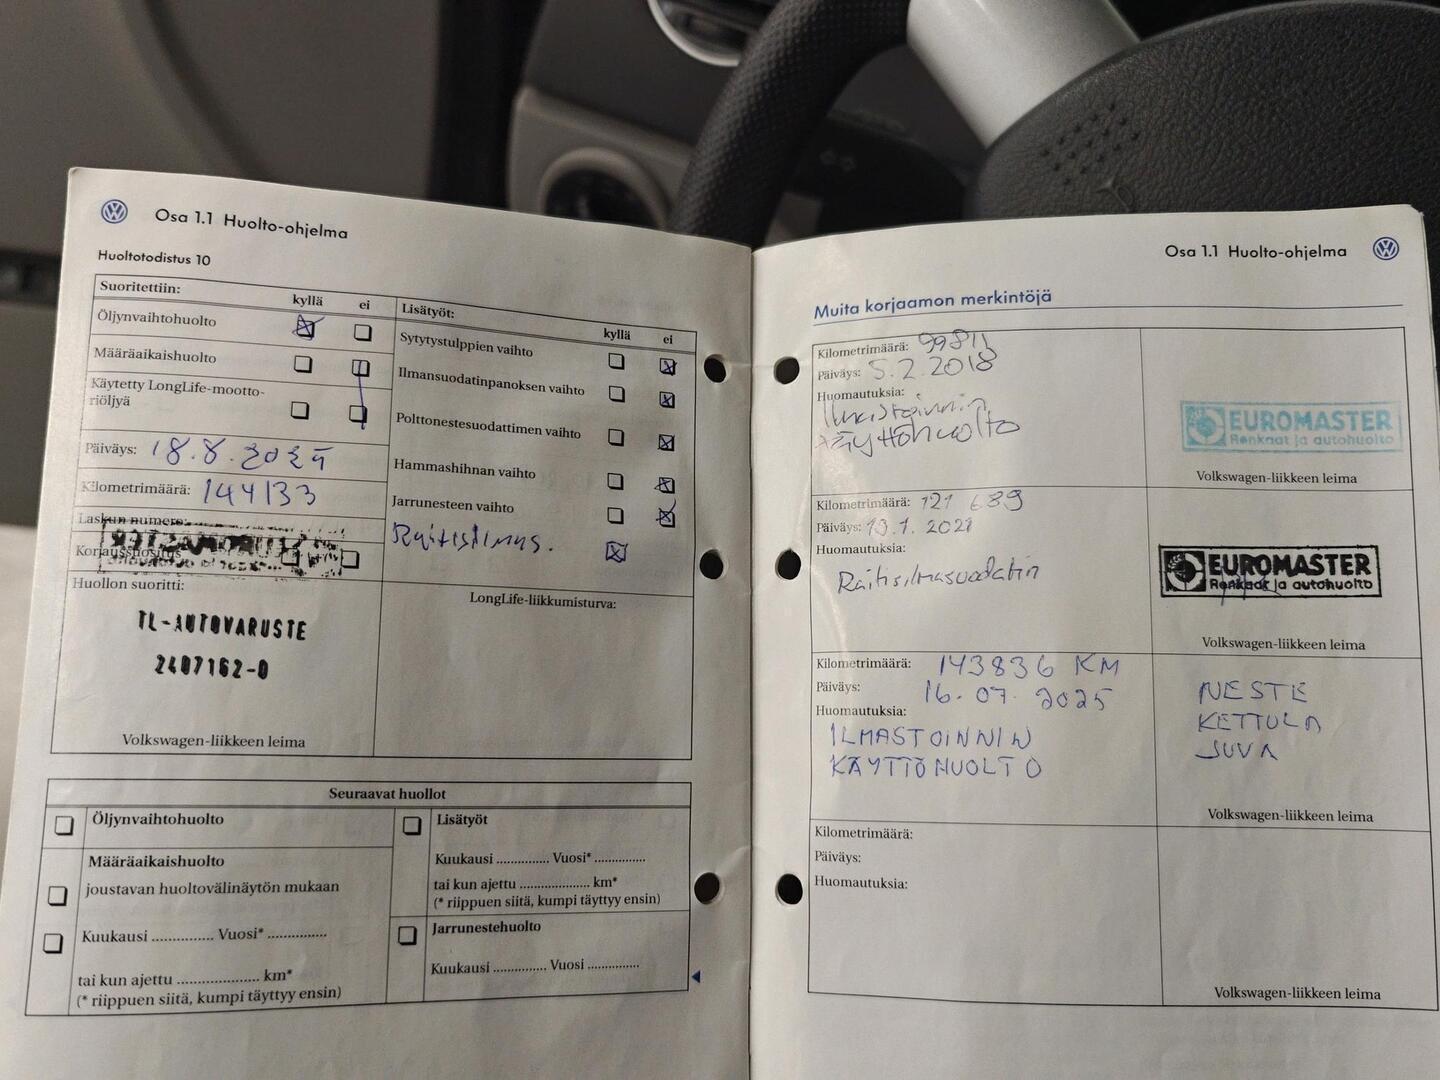 Osa 1.1 Huolto-ohjelma
Huoltotodistus 10
Suoritettiin:
kyllä ei
Öljynvaihtohuolto
Määräaikaishuolto
Käytetty LongLife-mootto-
riöljyä
Päiväys: 18.8.2025
Kilometrimäärä: 144133
Laskun numero:
Korjausnositus
Huollon suoritti:
TL-AUTOVARUSTE
2407162-0
Volkswagen-liikkeen leima
Lisätyöt:
kyllä ei
Sytytystulppien vaihto
Ilmansuodatinpanoksen vaihto
Polttonestesuodattimen vaihto
Hammashihnan vaihto
Jarrunesteen vaihto
Raitisilmas.
LongLife-liikkumisturva:
Seuraavat huollot
Öljynvaihtohuolto
Määräaikaishuolto
joustavan huoltovälinäytön mukaan
Kuukausi ............... Vuosi* ..............
tai kun ajettu .................... km*
(* riippuen siitä, kumpi täyttyy ensin)
Lisätyöt
Kuukausi ............... Vuosi* ..............
tai kun ajettu .................... km*
(* riippuen siitä, kumpi täyttyy ensin)
Jarrunestehuolto
Kuukausi ............... Vuosi ..............
Osa 1.1 Huolto-ohjelma
Muita korjaamon merkintöjä
Kilometrimäärä: 99811
Päiväys: 5.2.2018
Huomautuksia:
Ilmastoinnin
käyttöhuolto
EUROMASTER
Renkaat ja autohuolto
Volkswagen-liikkeen leima
Kilometrimäärä: 121 689
Päiväys: 13.1.2021
Huomautuksia:
Raitisilmasuodatin
EUROMASTER
Renkaat ja autohuolto
Volkswagen-liikkeen leima
Kilometrimäärä: 143836 KM
Päiväys: 16.07.2025
Huomautuksia:
ILMASTOINNIN
KÄYTTÖHUOLTO
NESTE
KETTULA
JUVA
Volkswagen-liikkeen leima
Kilometrimäärä:
Päiväys:
Huomautuksia:
Volkswagen-liikkeen leima